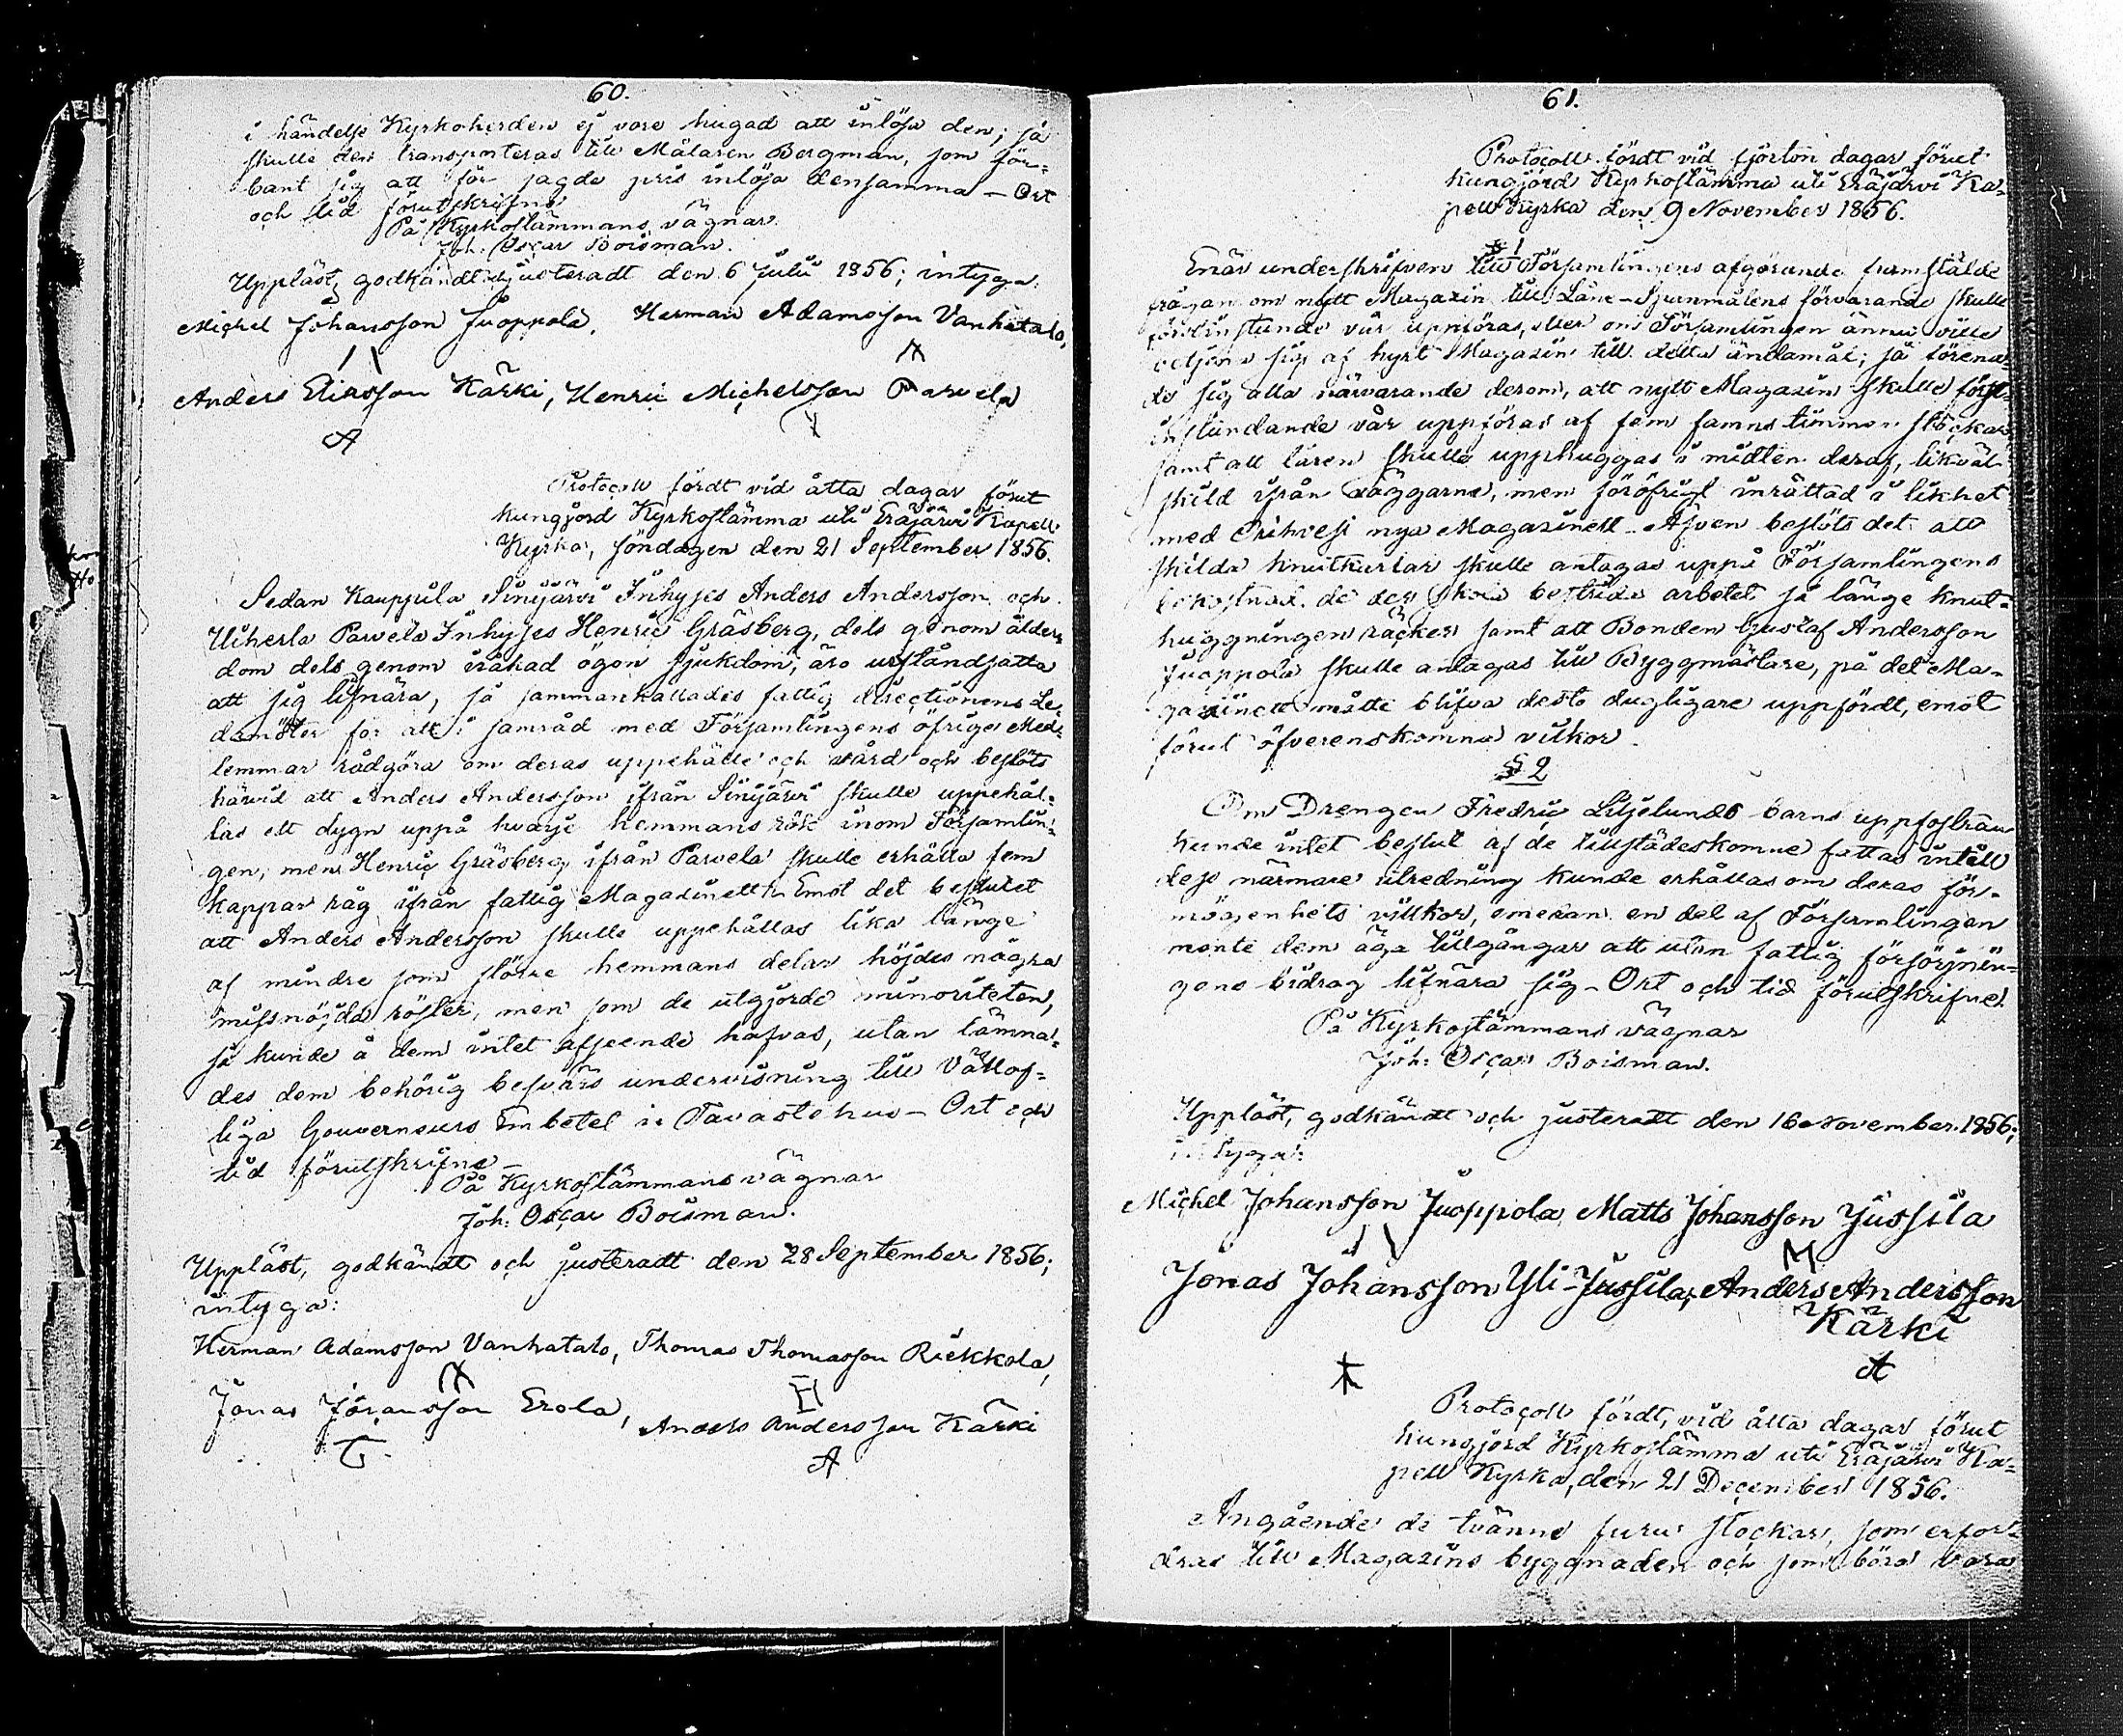 60.
i händelse Kyrkoherden ej vore hugad att inlösa den; så
skulle den transporteras till Målaren Bergman, som för-
bant sig att för sagde pris inlösa densamma – Ort
och tid förutskrifne
På Kyrkostämmans vägnar
Joh. Oscar Boisman.
Uppläst, godkändt justeradt den 6 Julii 1856; intyga:
Michel Johansson Juoppola, Herman Adamsson Vanhatalo,
Anders Eliasson Kärki, Henric Michelsson Parvela
A
Protocoll fördt vid åtta dagar förut
kungjord Kyrkostämma uti Eräjärvi Kapell
Kyrka, söndagen den 21 September 1856.
Sedan Kauppila Sinijärvi Inhyses Anders Andersson och
Uiherla Parvela Inhyses Henric Gräsberg, dels genom ålder-
dom dels genom iråkad ögon sjukdom, äro urståndsatta
att sig lifnära, så sammankallades fattig directionens Le-
damöter för att i samråd med Församlingens öfrige Med-
lemmar rådgöra om deras uppehälle och vård och beslöts
härvid att Anders Andersson ifrån Sinijärvi skulle uppehål-
las ett dygn uppå hvarje hemmans rök inom Församlin-
gen, men Henric Gräsberg ifrån Parvela skulle erhålla fem
kappar råg ifrån fattig Magasinett – Emot det beslutet
att Anders Andersson skulle uppehållas lika länge
af mindre som större hemmans delar höjdes några
missnöjda röster, men som de utgjorde minoriteten,
så kunde å dem intet afseende hafvas, utan lämna-
des dem behörig besvärs undervisning till Vällof-
liga Gouverneurs Embetet i Tavastehus – Ort och
tid förutskrifne –
På Kyrkostämmans vägnar
Joh: Oscar Boisman.
Uppläst, godkändt och justeradt den 28 September 1856;
intyga:
Herman Adamsson Vanhatalo, Thomas Thomasson Riekkola,
Jonas Jöransson Erola, Anders Andersson Kärki
A
61.
Protocoll fördt vid fjorton dagar förut
kungjord Kyrkostämma uti Eräjärvi Ka-
pell Kyrka den 9 November 1856.
§ 1
Enär underskrifven till Församlingens afgörande framstälde
frågan om nytt Magazin till Låne-Spanmålens förvarande skulle
förstinstundande vår uppföras, eller om Församlingen ännu ville
betjena sig af hyrt Magazin till detta ändamål; så förena-
de sig alla närvarande derom, att nytt Magazin skulle först-
instundande vår uppföras af fem famns timmer stockar
samt att låren skulle upphuggas i midten deraf, likväl
skild ifrån väggarne, men föröfrigt inrättad i likhet
med Orihvesi nya Magazinett. Äfven beslöts det att
skilda knutkarlar skulle antagas uppå Församlingens
bekostnad, de der skola bestrida arbetet så länge knut-
huggningen räcker samt att Bonden Gustaf Andersson
Juoppola skulle antagas till Byggmästare, på det Ma-
gazinett måtte blifva desto dugligare uppfördt, emot
förut öfverenskomna vilkor.
§ 2
Om Drengen Fredric Liljelunds barns uppfostran
kunde intet beslut af de tillstädeskomne fattas intill
dess närmare utredning kunde erhållas om deras för-
mögenhets villkor, emedan en del af Församlingen
mente dem äga tillgångar att utan fattig försörjnin-
gens bidrag lifnära sig – Ort och tid förutskrifne.
På Kyrkostämmans vägnar
Joh: Oscar Boisman.
Uppläst, godkändt och justeradt den 16 November 1856;
intyga:
Michel Johansson Juoppola, Matts Johansson Jussila
Jonas Johansson Yli-Jussila, Anders Andersson
Kärki
A
Protocoll fördt, vid åtta dagar förut
kungjord Kyrkostämma uti Eräjärvi Ka-
pell Kyrka, den 21 December 1856.
Angående de tvänne furu stockar, som erfor-
dras till Magazins byggnaden och som böra vara